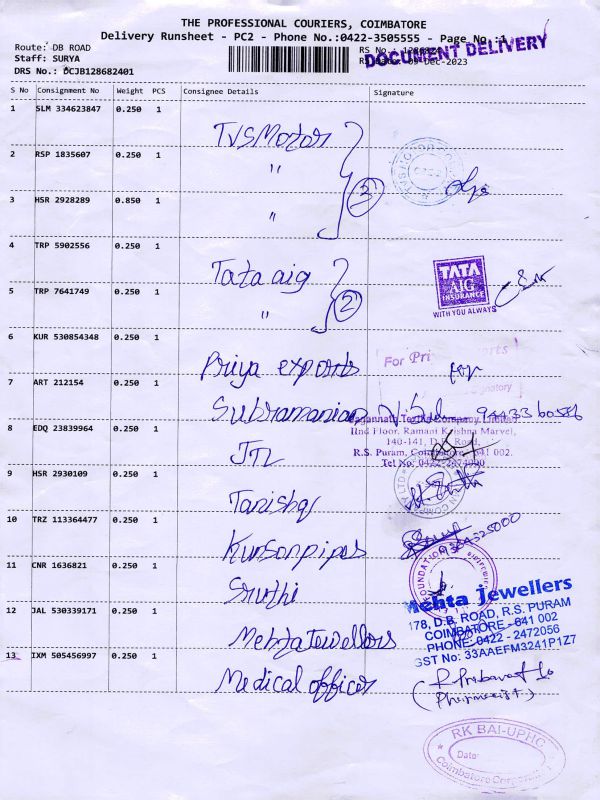 THE PROFESSIONAL COURIERS, COIMBATORE
Delivery Runsheet - PC2 - Phone No.:0422-3505555 - Page No.:1
Route: DB ROAD
RS No.:
DOCUMENT DELIVERY
Staff: SURYA
Dec-2023
DRS No.: DCJB128682401
S No Consignment No Weight PCS Consignee Details Signature
1 SLM 334623847 0.250 1 TVS Motor
2 RSP 1835607 0.250 1 "
3 HSR 2928289 0.850 1 "
3
4 TRP 5902556 0.250 1 Tata aig
TATA
AIG
INSURANCE
WITH YOU ALWAYS
5 TRP 7641749 0.250 1 "
2
6 KUR 530854348 0.250 1 Priya exports
For Pri
7 ART 212154 0.250 1 Subramanian
Jagannath Textile Company Limited
IInd Floor, Ramani Krishna Marvel,
140-141, D.B. Road,
R.S. Puram, Coimbatore - 641 002.
Tel No: 0422-2474000
8 EDQ 23839964 0.250 1 JTL
9 HSR 2930109 0.250 1 Tanishq
10 TRZ 113364477 0.250 1 Kunsonpipes
11 CNR 1636821 0.250 1 Sruthi
FOUNDATION
12 JAL 530339171 0.250 1 Mehta Jewellers
Mehta Jewellers
178, D.B. ROAD, R.S. PURAM
COIMBATORE - 641 002
PHONE: 0422 - 2472056
GST No: 33AAEFM3241P1Z7
13 IXM 505456997 0.250 1 Medical officer
(Pharmacist)
RK BAI-UPHC
Date:
Coimbatore Corporation